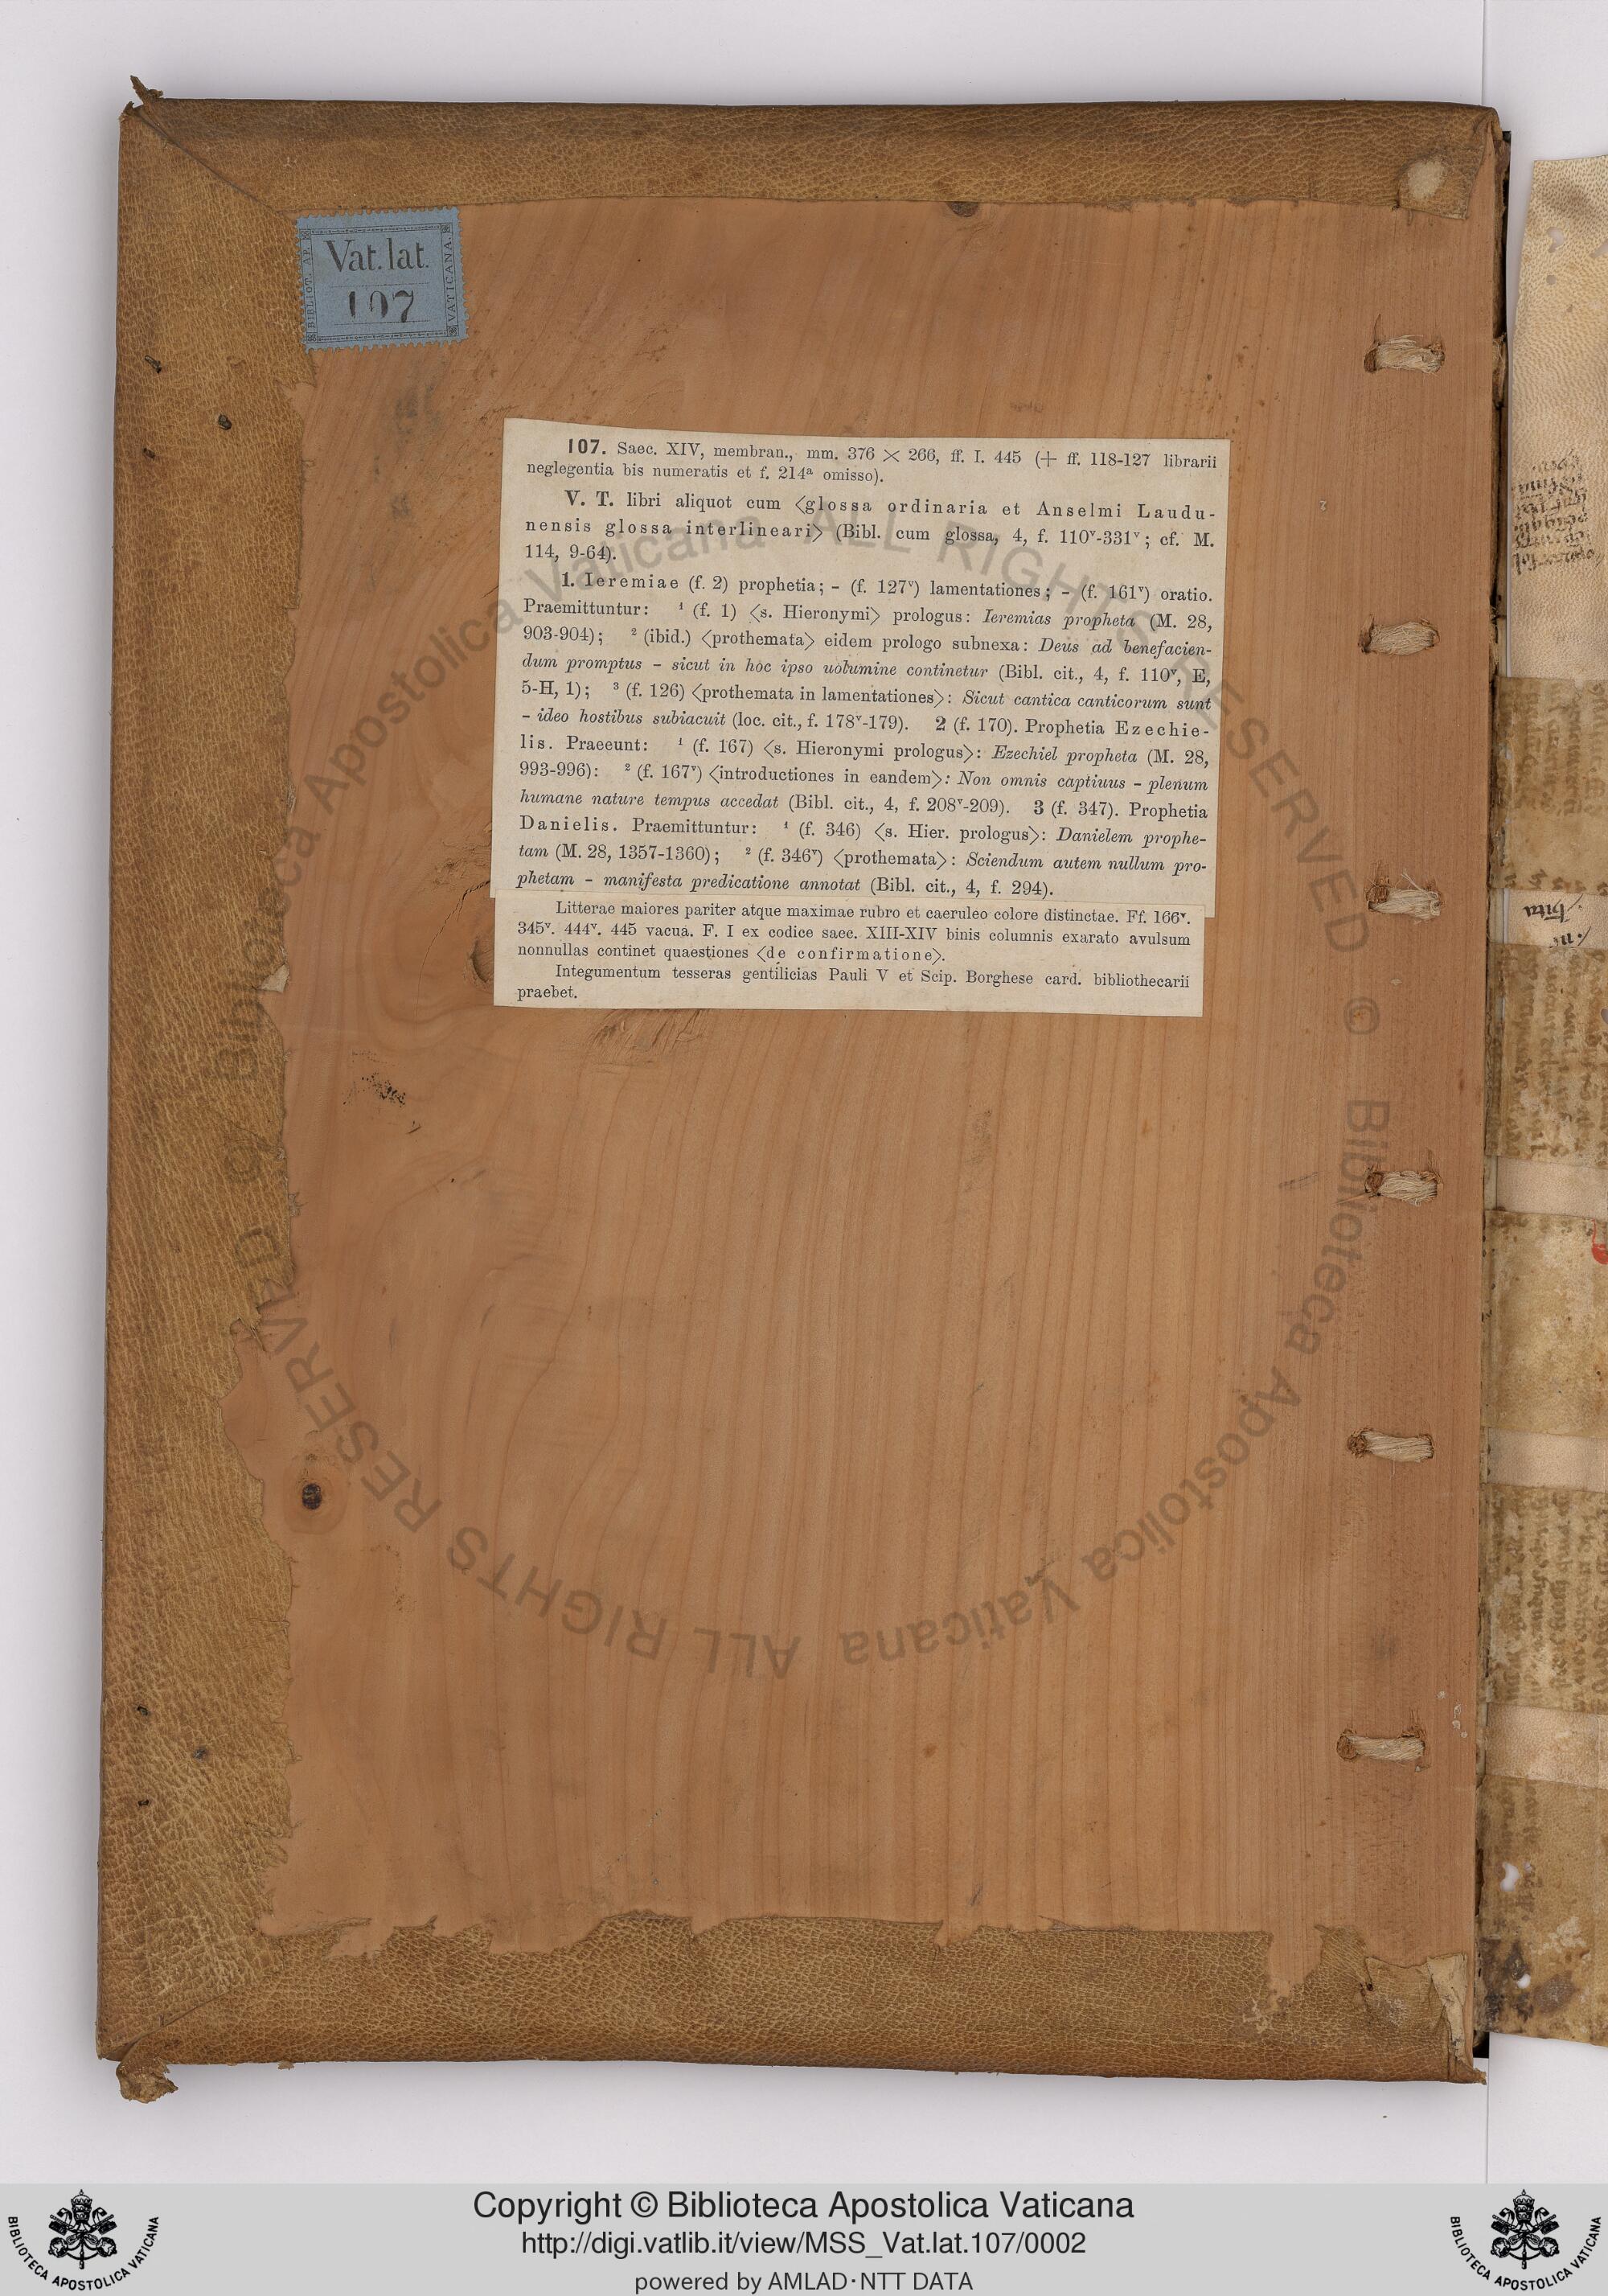 BIBLIOT. AP. VATICANA
Vat. lat.
107
107. Saec. XIV, membran., mm. 376 × 266, ff. I. 445 (+ ff. 118-127 librarii
neglegentia bis numeratis et f. 214ᵃ omisso).
V. T. libri aliquot cum ⟨glossa ordinaria et Anselmi Laudu-
nensis glossa interlineari⟩ (Bibl. cum glossa, 4, f. 110ᵛ-331ᵛ; cf. M.
114, 9-64).
1. Ieremiae (f. 2) prophetia; – (f. 127ᵛ) lamentationes; – (f. 161ᵛ) oratio.
Praemittuntur: ¹ (f. 1) ⟨s. Hieronymi⟩ prologus: Ieremias propheta (M. 28,
903-904); ² (ibid.) ⟨prothemata⟩ eidem prologo subnexa: Deus ad benefacien-
dum promptus – sicut in hoc ipso uolumine continetur (Bibl. cit., 4, f. 110ᵛ, E,
5-H, 1); ³ (f. 126) ⟨prothemata in lamentationes⟩: Sicut cantica canticorum sunt
– ideo hostibus subiacuit (loc. cit., f. 178ᵛ-179). 2 (f. 170). Prophetia Ezechie-
lis. Praeeunt: ¹ (f. 167) ⟨s. Hieronymi prologus⟩: Ezechiel propheta (M. 28,
993-996): ² (f. 167ᵛ) ⟨introductiones in eandem⟩: Non omnis captiuus – plenum
humane nature tempus accedat (Bibl. cit., 4, f. 208ᵛ-209). 3 (f. 347). Prophetia
Danielis. Praemittuntur: ¹ (f. 346) ⟨s. Hier. prologus⟩: Danielem prophe-
tam (M. 28, 1357-1360); ² (f. 346ᵛ) ⟨prothemata⟩: Sciendum autem nullum pro-
phetam – manifesta predicatione annotat (Bibl. cit., 4, f. 294).
Litterae maiores pariter atque maximae rubro et caeruleo colore distinctae. Ff. 166ᵛ.
345ᵛ. 444ᵛ. 445 vacua. F. I ex codice saec. XIII-XIV binis columnis exarato avulsum
nonnullas continet quaestiones ⟨de confirmatione⟩.
Integumentum tesseras gentilicias Pauli V et Scip. Borghese card. bibliothecarii
praebet.
Biblioteca Apostolica Vaticana ALL RIGHTS RESERVED © Biblioteca Apostolica Vaticana ALL RIGHTS RESERVED ©
Copyright © Biblioteca Apostolica Vaticana
http://digi.vatlib.it/view/MSS_Vat.lat.107/0002
powered by AMLAD·NTT DATA
BIBLIOTECA APOSTOLICA VATICANA
BIBLIOTECA APOSTOLICA VATICANA